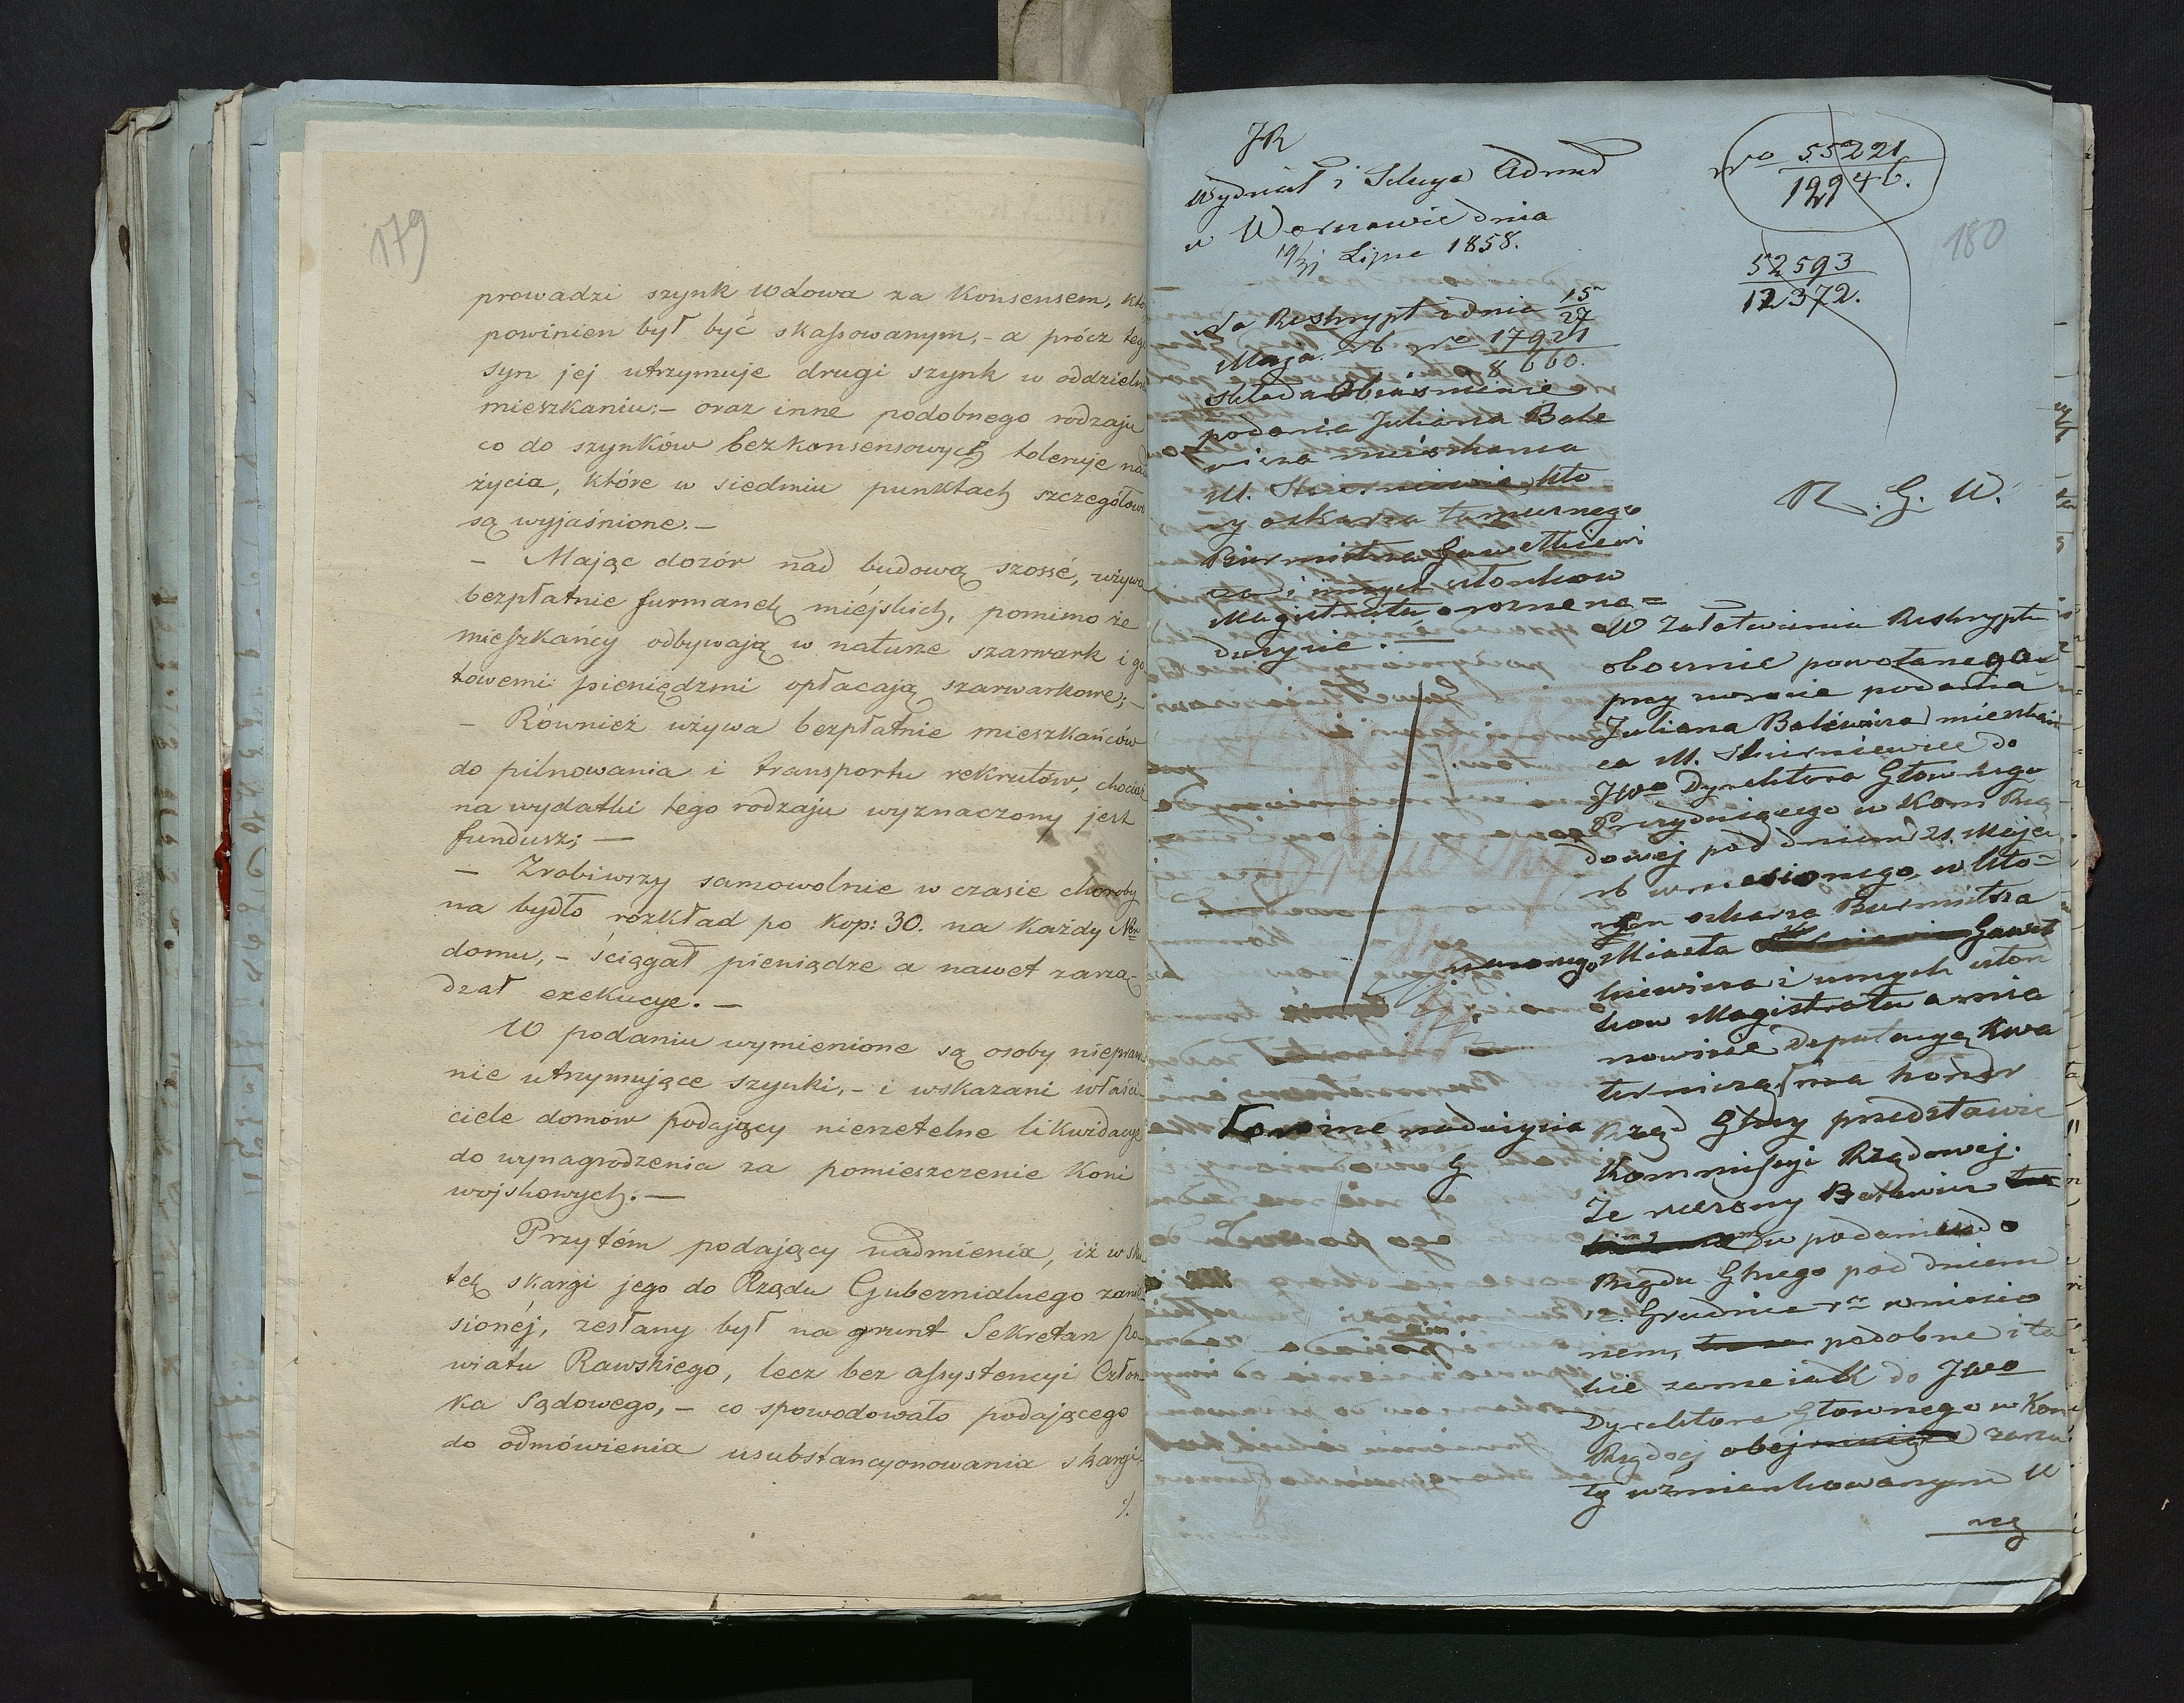 179
prowadzi szynk Wdowa za Konsensem, któ
powinien był być skassowanym,- a prócz teg
syn jej utrzymuje drugi szynk w oddzieln
mieszkaniu;- oraz inne podobnego rodzaju
co do szynków bezkonsensowych toleruje nad
życia, które w siedmiu punktach szczegółow
są wyjaśnione.-
- Mając dozór nad budową szossé, używa
bezpłatnie furmanek miejskich, pomimo że
mieszkańcy odbywają w naturze szarwark i go
towemi pieniędzmi opłacają szarwarkowe;-
- Również używa bezpłatnie mieszkańców
do pilnowania i transportu rekrutów, chociaż
na wydatki tego rodzaju wyznaczony jest
fundusz; -
- Zrobiwszy samowolnie w czasie choroby
na bydło rozkład po kop: 30. na każdy Ner
domu,- ściągał pieniądze a nawet zarzą-
dzał exekucye.-
W podaniu wymienione są osoby niepraw-
nie utrzymujące szynki,- i wskazani właści-
ciele domów podający nierzetelne likwidacye
do wynagrodzenia za pomieszczenie Koni
wojskowych.-
Przytém podający nadmienia, iż w sku
tek skargi jego do Rządu Gubernialnego zanie-
sionéj, zesłany był na grunt Sekretarz Po-
wiatu Rawskiego, lecz bez assystencyi Człon-
ka Sądowego,- co spowodowało podającego
do odmówienia usubstancyonowania skargi.
./.
JR
Wydział i Sekcya Admna
w Warszawie dnia
19/31 Lipca 1858.
No 55221
12946.
52593
12372.
180
Na Reskrypt z dnia 15/27
Maja rb No 17921
8660.
Składa Objaśnienie
podania Juliana Bale
wicza mieszkanca
M. Skierniewic, któ
ry oskarża tamecznego
Burmistrza Gawetkiewi
cza i innych członkow
Magistratu o rozne na=
duzycie.
R. G. W.
W załatwieniu Reskryptu
obocznie powołanego
przy zwrocie podania
Juliana Balewicza mieszkań
ca M. Skierniewice do
JWo Dyrektora Głownego
Prezydującego w Kom Rzą
dowej pod dniem 21 Maja
rb wniesionego, w któ=
rem oskarża Burmistrza
Miasta Gawet
kiewicza i innych człon
kow Magistratu a mia
nowicie Deputacyą Kwa
terniczą, ma honor
o rożne nadużycia
Rząd Głny przedstawic
Kommissyi Rządowej.
Ze rzeczony Balewicz
w podaniu do
Rządu Głnego pod dniem
Grudnia rz wniesio
nem, podobne i ta
kie zamieścił do JWo
Dyrektora Głownego w Kom
Rządcej zarzu
ty wzmiankowanym U
rzę